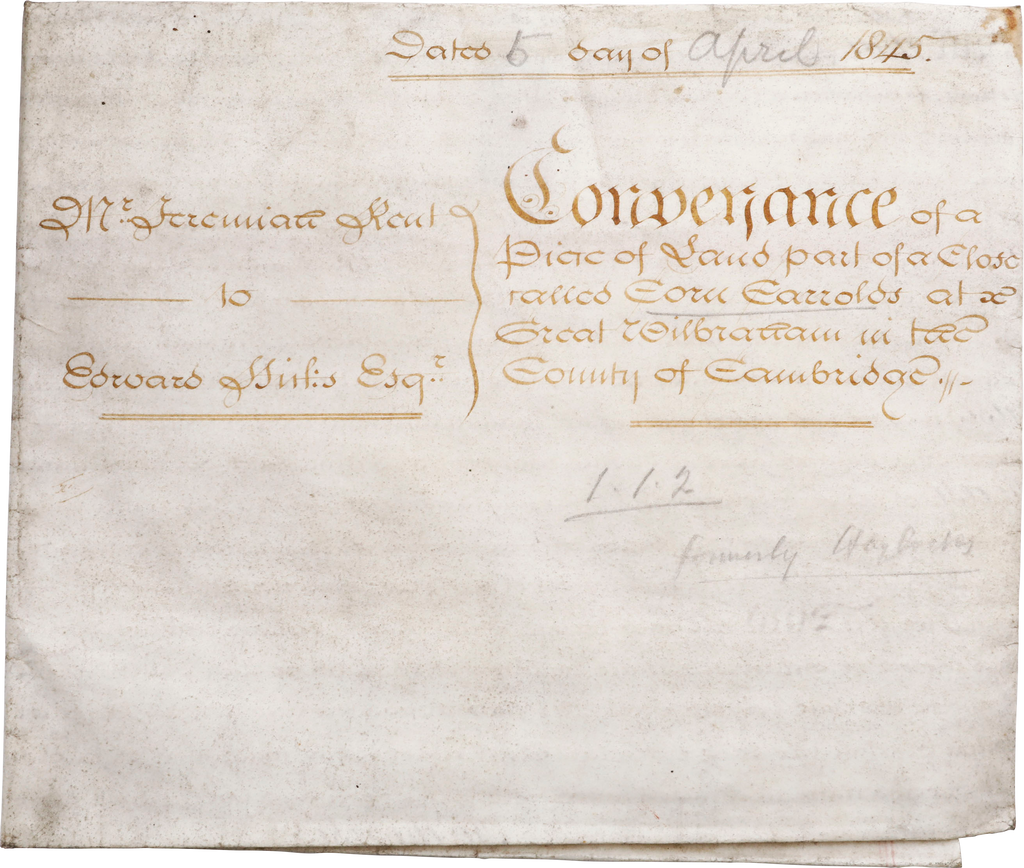 Dated 5 day of April 1845.
Mr. Jeremiah Kent
to
Edward Hicks Esqr
Conveyance of a
Piece of Land part of a Close
called Corn Carrolds at
Great Wilbraham in the
County of Cambridge
1.1.2
formerly